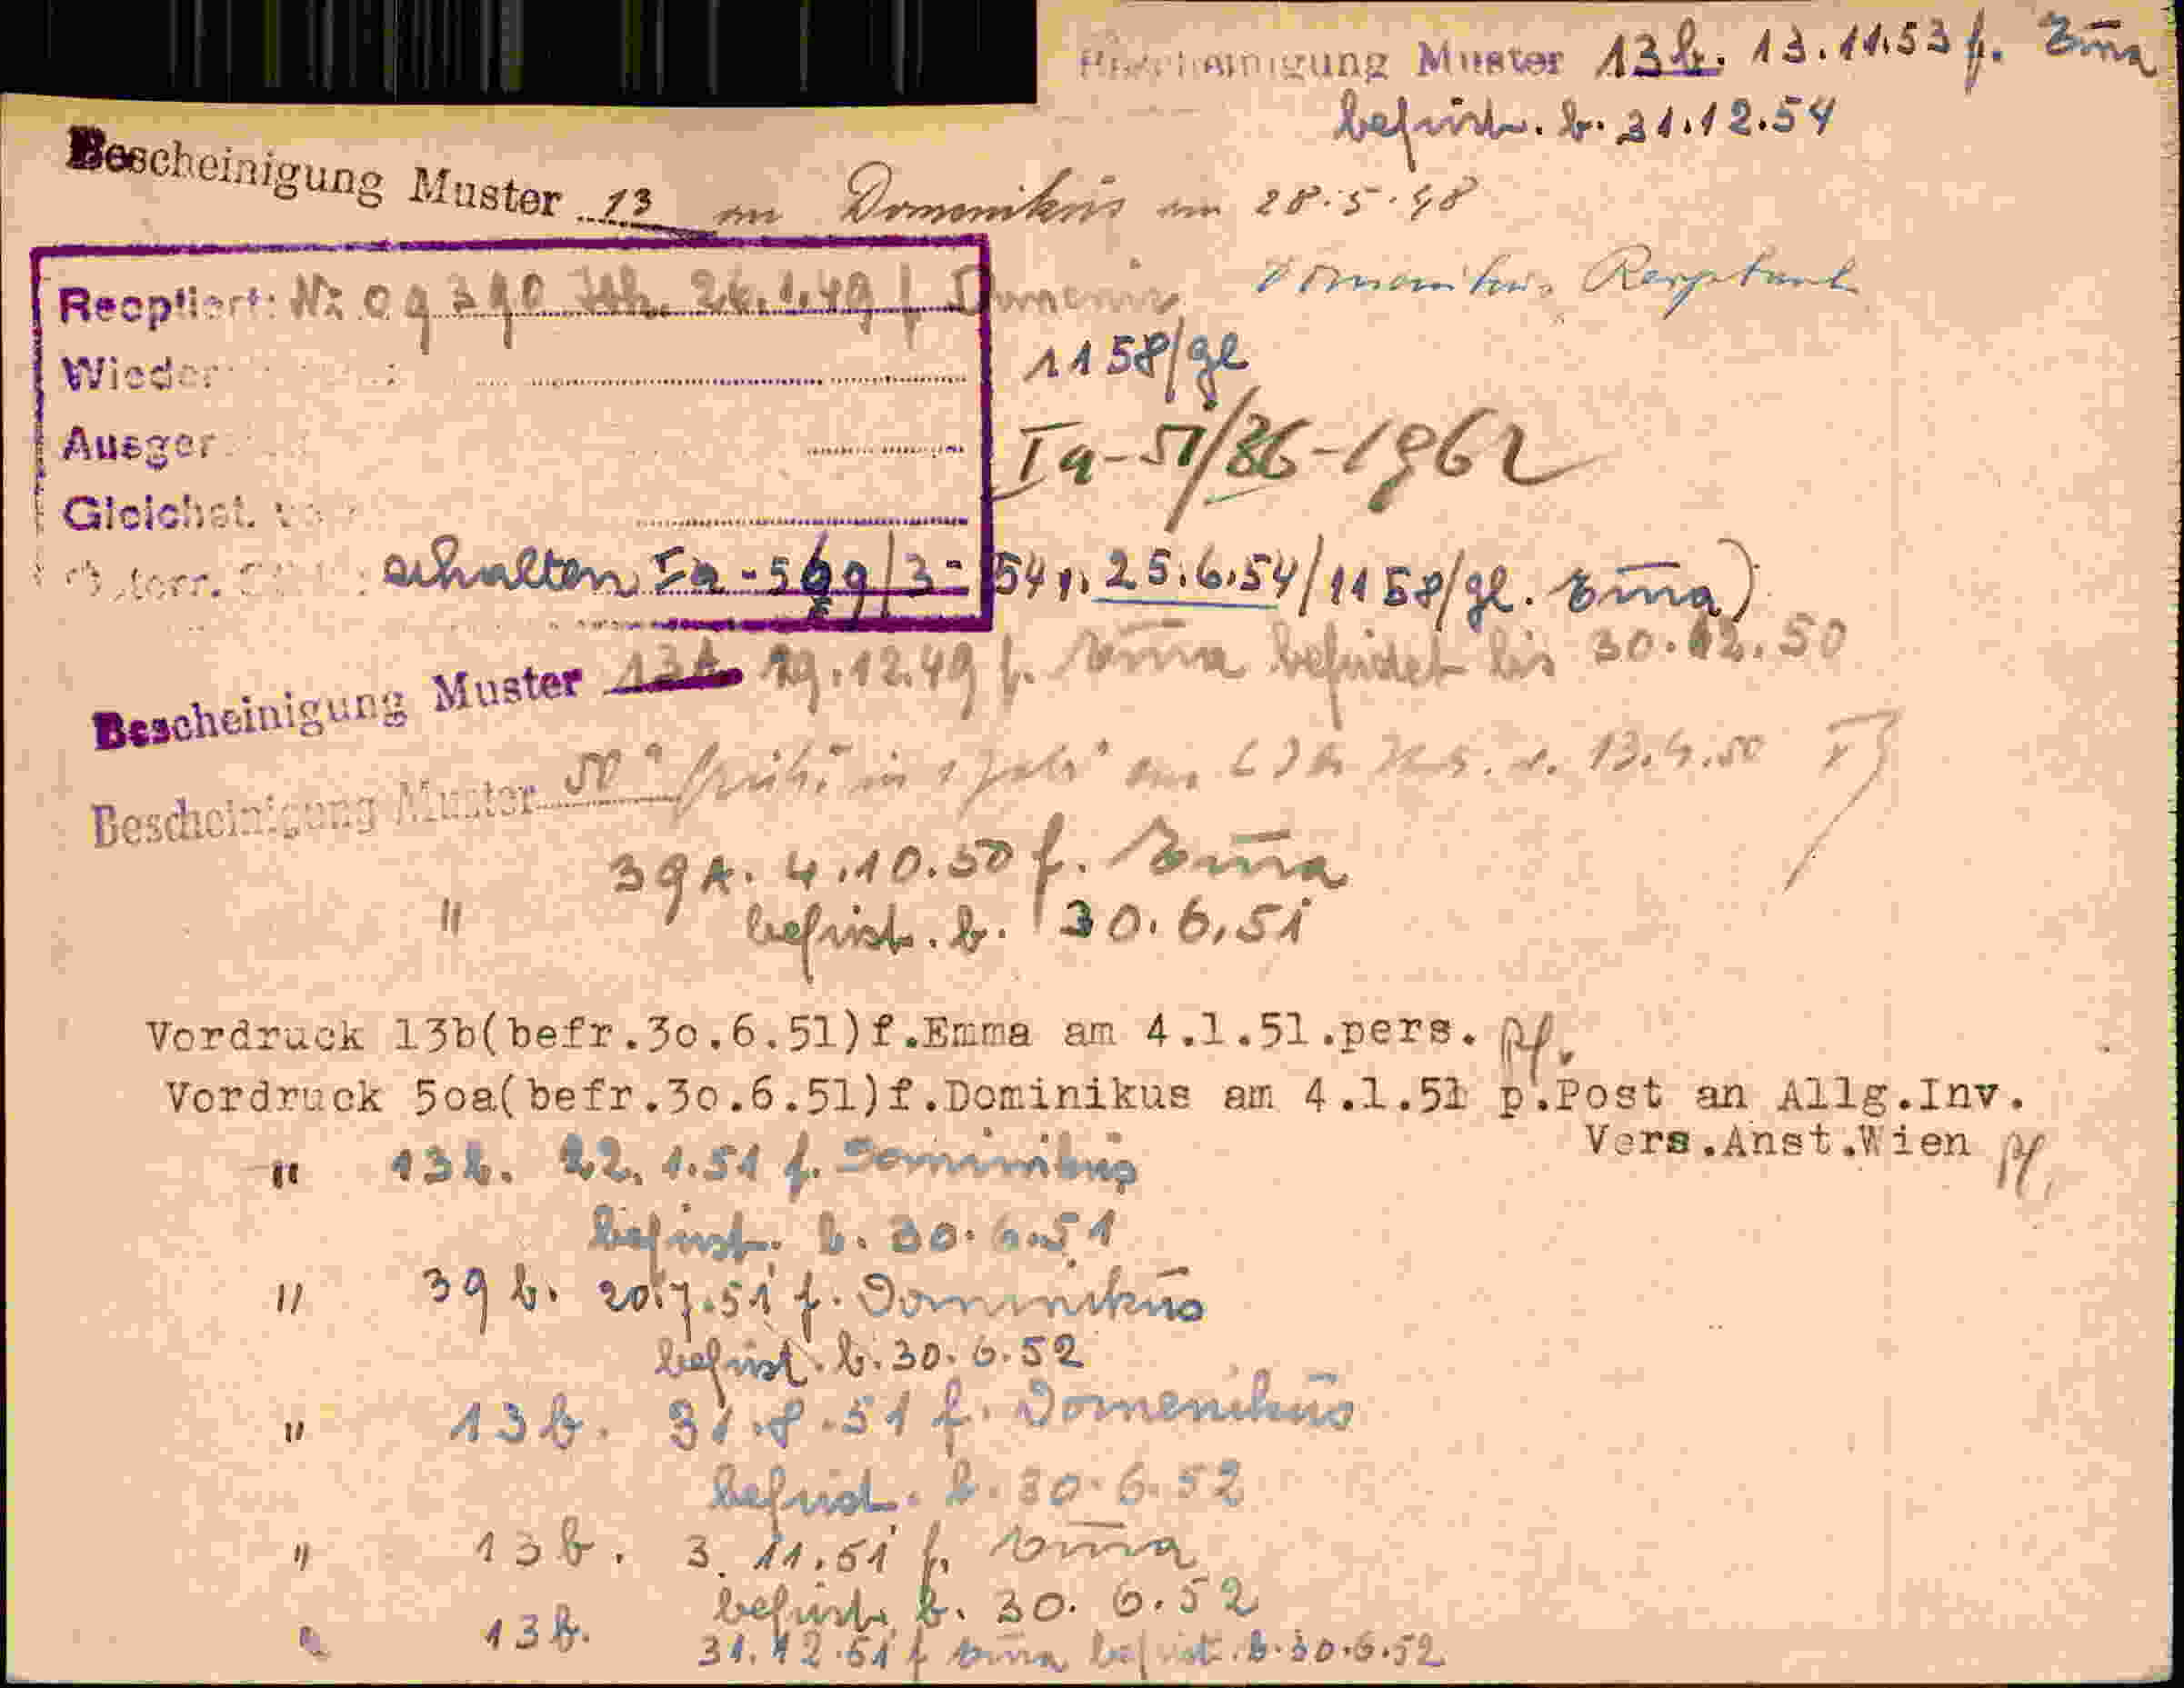 Bescheinigung Muster 13b. 13.11.53 f. Em̄a
befrist. b. 31.12.54
Bescheinigung Muster 13 an Domenikus am 28.5.48
Domenikus
Reoptiert: Nr. 09390 26.1.49 f. Domenik
1158/gl
Wieder :
Ausger
Ia-51/86-1962
Gleichst.
Österr. erhalten Ia-569/3-54 v. 25.6.54/1158/gl. Em̄a)
Bescheinigung Muster 13b. 29.12.49 f. Em̄a befristet bis 30.12.50
Bescheinigung Muster 50a in v. 13.4.50
39a. 4.10.50 f. Em̄a
" befrist. b. 30.6.51
Vordruck 13b(befr.3o.6.51)f.Emma am 4.1.51.pers.
Vordruck 5oa(befr.3o.6.51)f.Dominikus am 4.1.51 p.Post an Allg.Inv.
Vers.Anst.Wien
" 13b. 22.1.51 f. Dominikus
befrist. b. 30.6.51
" 39b. 20.7.51 f. Dominikus
befrist. b. 30.6.52
" 13b. 31.8.51 f. Domenikus
befrist. b. 30.6.52
" 13b. 3.11.51 f. Em̄a
befrist. b. 30.6.52
" 13b. 31.12.51 f Em̄a befrist. b. 30.6.52